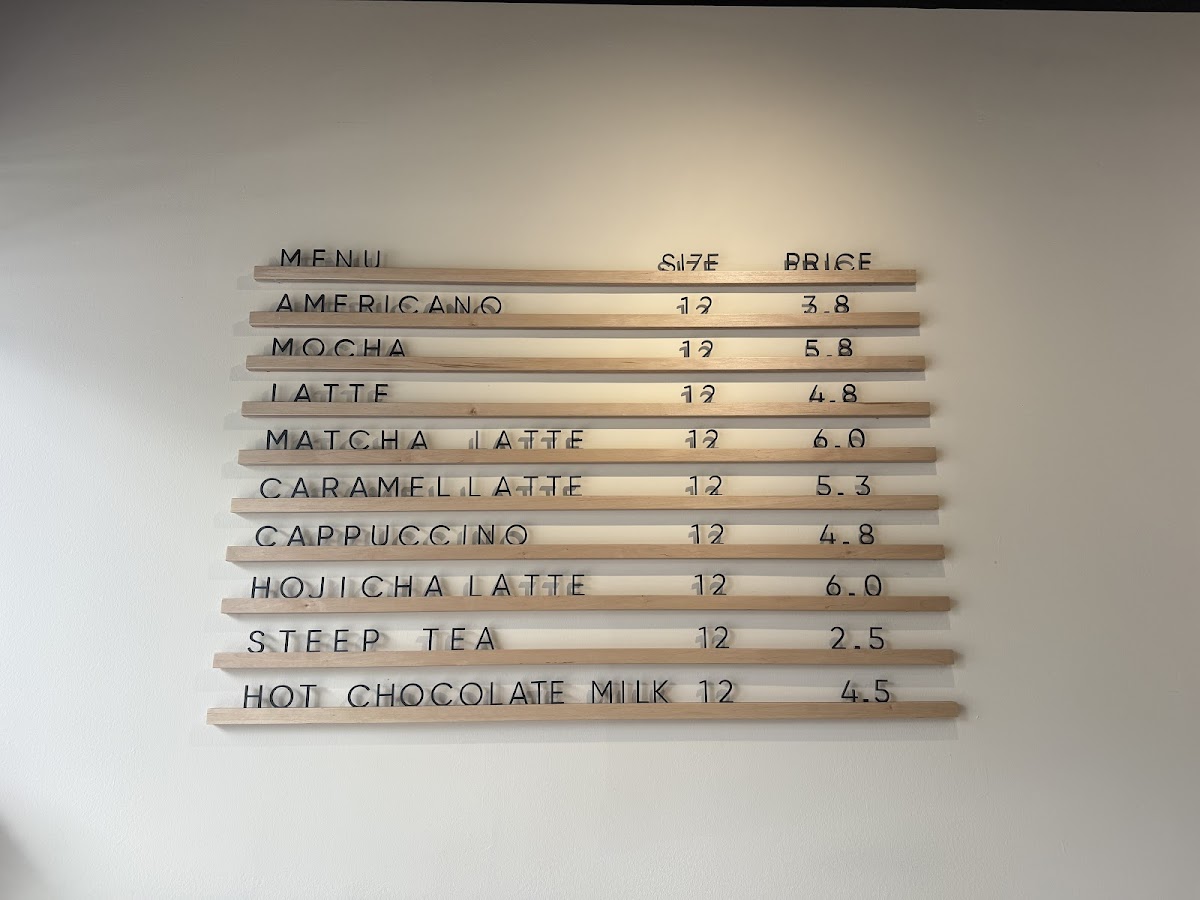 MENU SIZE PRICE
AMERICANO 12 3.8
MOCHA 12 5.8
LATTE 12 4.8
MATCHA LATTE 12 6.0
CARAMEL LATTE 12 5.3
CAPPUCCINO 12 4.8
HOJICHA LATTE 12 6.0
STEEP TEA 12 2.5
HOT CHOCOLATE MILK 12 4.5